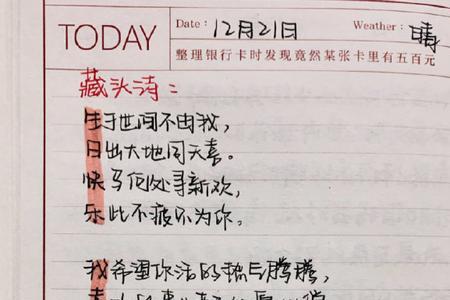 TODAY
Date : 12月21日 Weather : 晴
整理银行卡时发现竟然某张卡里有五百元
藏头诗：
生于世间不由我，
日出大地同天喜。
快马何处寻新欢，
乐此不疲只为你。
我希望你活的热气腾腾，